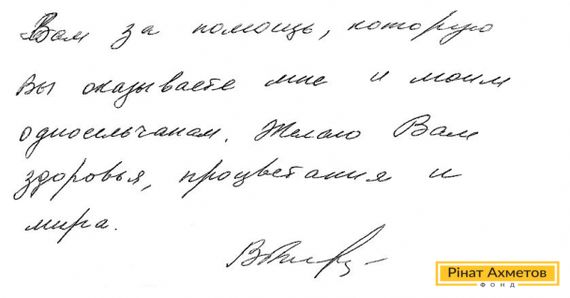 Вам за помощь, которую
Вы оказываете мне и моим
односельчанам. Желаю Вам
здоровья, процветания и
мира.
Рінат Ахметов
ФОНД